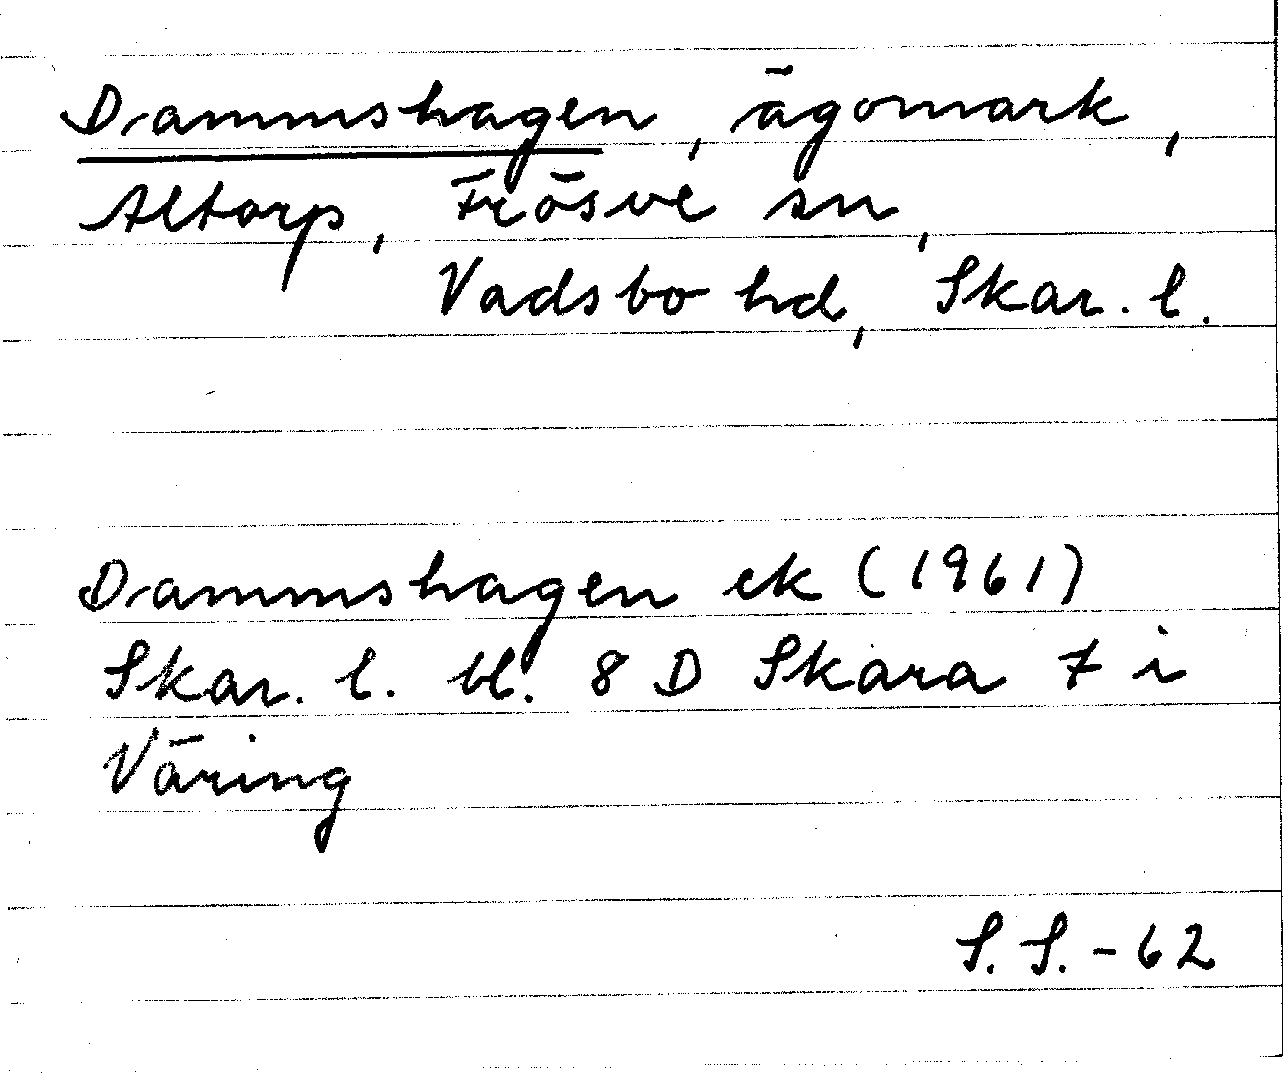 Dammshagen, ägomark,
Altorp, Frösve sn,
Vadsbo hd, Skar. l.
Dammshagen ek (1961)
Skar. l. bl. 8 D Skara 7 i
Väring
S. S. - 62